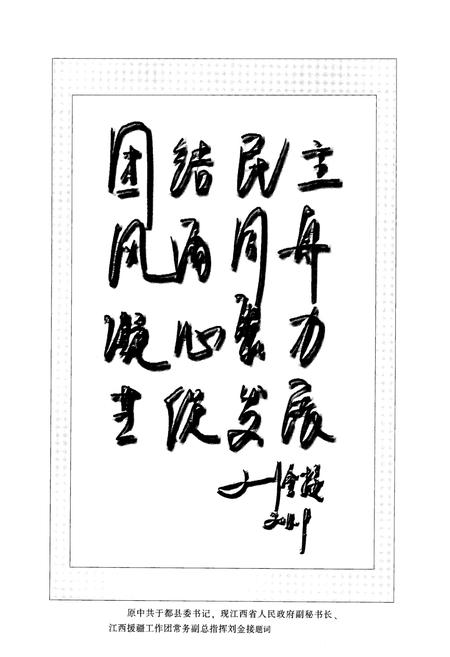 团结民主
风雨同舟
凝心聚力
共促发展
刘金接
原中共于都县委书记、现江西省人民政府副秘书长、
江西援疆工作团常务副总指挥刘金接题词